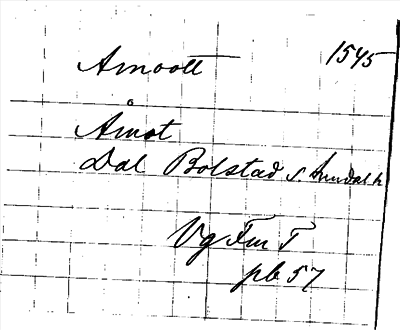 Amoott 1545
Åmot
Dal Bolstad s Sundals h
Vg Fm T
pb 57